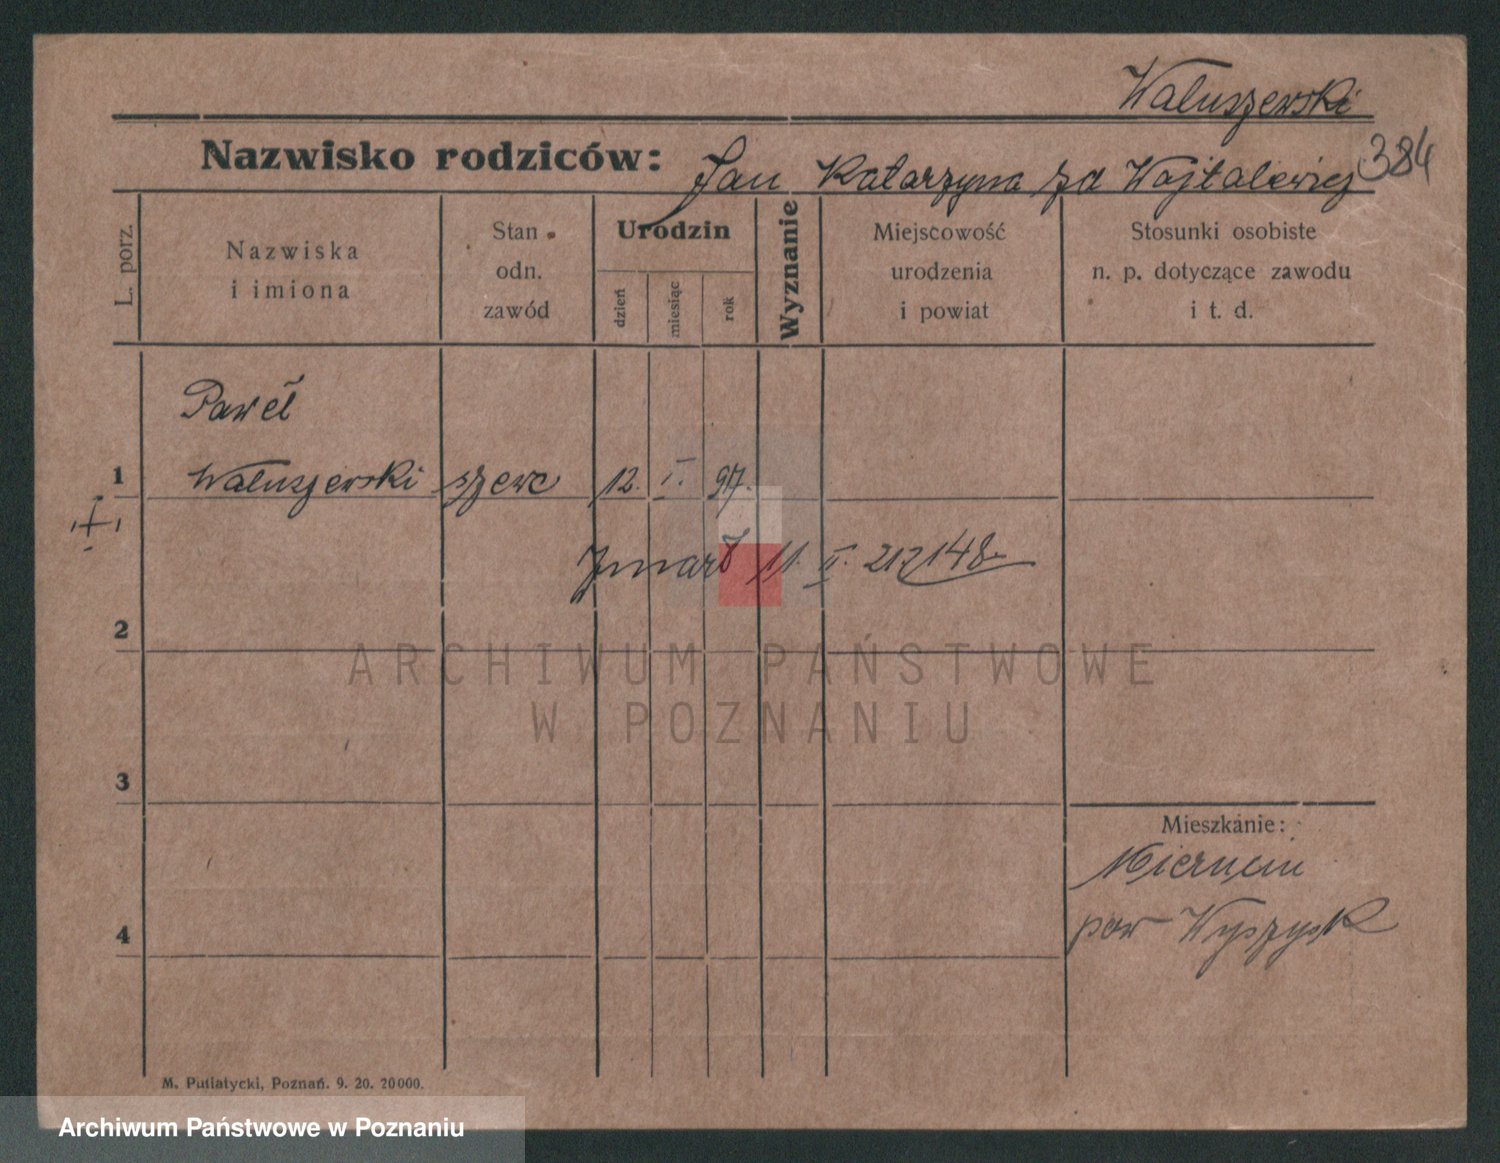 Waluszewski
384
Nazwisko rodziców: Jan Katarzyna zd Wojtalewicz
L. porz.
Nazwiska
i imiona
Stan
odn.
zawód
Urodzin
dzień
miesiąc
rok
Wyznanie
Miejscowość
urodzenia
i powiat
Stosunki osobiste
n. p. dotyczące zawodu
i t. d.
Paweł
1 Wałuszewski szewc 12. I. 97.
Zmarł 11. II.
2
ARCHIWUM PAŃSTWOWE
W POZNANIU
3
Mieszkanie:
pow Wyrzysk
4
M. Putiatycki, Poznań. 9. 20. 20000.
Archiwum Państwowe w Poznaniu